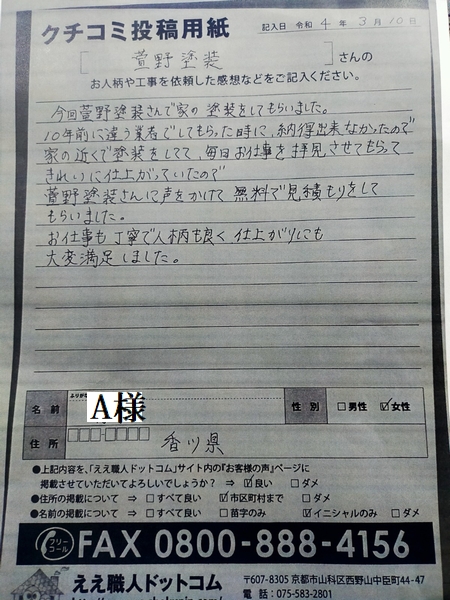 クチコミ投稿用紙
記入日 令和 4 年 3 月 10 日
[ 萱野塗装 ] さんの
お人柄や工事を依頼した感想などをご記入ください。
今回萱野塗装さんで家の塗装をしてもらいました。
10年前に違う業者でしてもらった時に、納得出来なかったので
家の近くで塗装をしてて、毎日お仕事を拝見させてもらって
きれいに仕上がっていたので
萱野塗装さんに声をかけて 無料で見積もりをして
もらいました。
お仕事も丁寧で人柄も良く 仕上がりにも
大変満足しました。
ふりがな
名前 A様 性別 □男性 ☑女性
住所 香川県
●上記内容を、「ええ職人ドットコム」サイト内の『お客様の声』ページに
掲載させていただいてよろしいでしょうか? ⇒ ☑良い □ダメ
●住所の掲載について ⇒ □すべて良い ☑市区町村まで □ダメ
●名前の掲載について ⇒ □すべて良い □苗字のみ ☑イニシャルのみ □ダメ
フリーコール FAX 0800-888-4156
ええ職人ドットコム 〒607-8305 京都市山科区西野山中臣町44-47
電話:075-583-2801